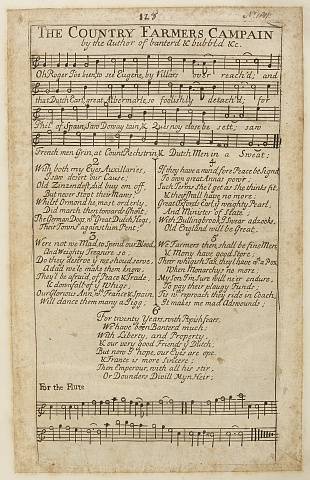 128
THE COUNTRY FARMERS CAMPAIN
by the Author of banter'd & bubbl'd &c.
Oh Roger I've bien, to see Eugene, by Villars over reach'd; and
that Dutch Earl, great Albermarle, so foolishly detach'd; for
Phil of Spain, saw Doway ta'n, & Quesnoy close be sett; saw
French men Grin, at Count Rechstrin, & Dutch Men in a Sweat;
2
With both my Eyes, Auxillaries,
I saw desert our Cause;
Old Zinzendof, did buy em off,
But never stopt their Maws;
Whilst Ormond he, most orderly,
Did march them towards Ghent;
The German Dog, & Great Dutch Hogs,
Their Towns against him Pent;
3
Were not we Mad, to Spend our Blood,
And Weighty Treasure so
Do they deserve, yt we should serve,
Adad we'le make them know.
They'l be afraid, of Peace & Trade,
& downfall of ye Whigs.
Our Glorious Ann, wth France & Spain,
Will dance them many a Jigg;
4
If they have a mind, for a Peace be Signd
To own great Annas power.
Such Terms She'l get, as She thinks fit,
& they shall have no more.
Great Oxfords Earl, yt weighty Pearl,
And Minister of State,
With Bullingbrook,
Old England will be Great.
5
We Farmers then, shall be fine Men
& Mony have good Store.
Their whiggish Tax, they'l have
When Monarchy's no more;
My son I'm Sure, will neer endure,
To pay their plaugy Funds;
Tis wth reproach, they ride in Coach,
It makes me mad Adwounds;
6
For twenty Years, with
We have been Banterd much;
With Liberty, and Property,
& our very good Friends ye Dutch.
But now I hope, our Eyes are ope
& France is more Sincere;
Then Emperour, with all his stir,
Or Dounders Divill Myn Heir;
For the Flute